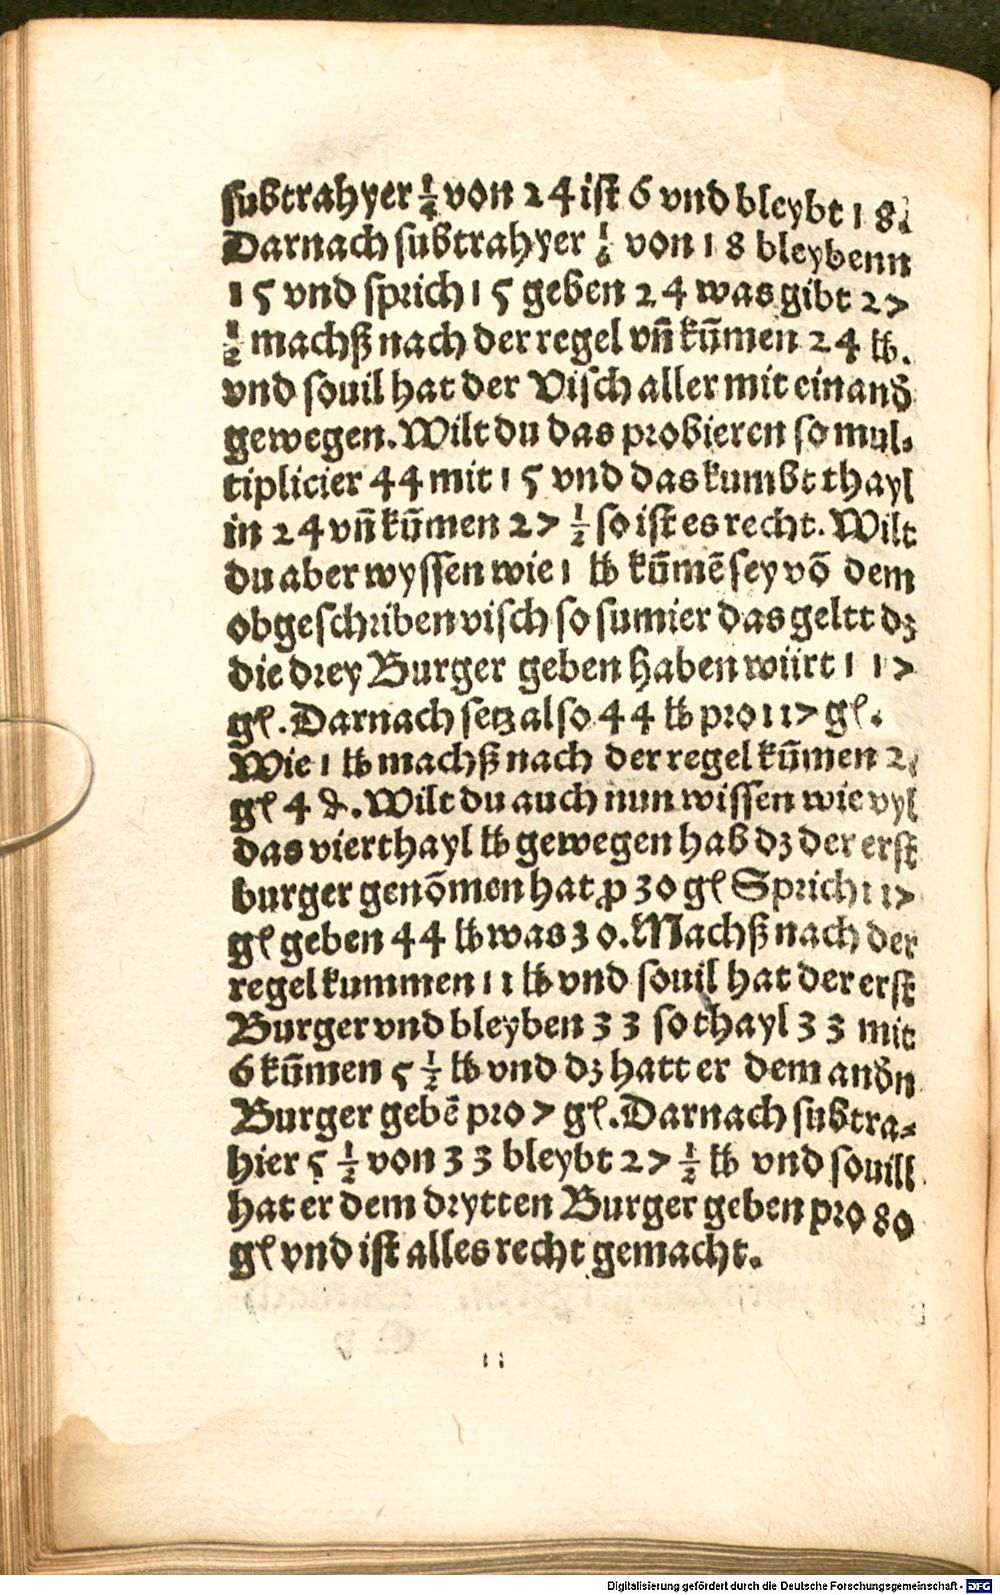 subtrahyer ¼ von 24 ist 6 vnd bleybt 18.
Darnach subtrahyer ⅙ von 18 bleybenn
15 vnd sprich 15 geben 24 was gibt 27
½ machß nach der regel vn̄ kūmen 24 ℔.
vnd souil hat der Visch aller mit einand
gewegen. Wilt du das probieren so mul⸗
tiplicier 44 mit 15 vnd das kumbt thayl
in 24 vn̄ kūmen 27 ½ so ist es recht. Wilt
du aber wyssen wie 1 ℔ kūmē sey vō dem
obgeschriben visch so sumier das geltt dz
die drey Burger geben haben würt 117
gl. Darnach setz also 44 ℔ pro 117 gl.
Wie 1 ℔ machß nach der regel kūmen 2
gl 4 ₰. Wilt du auch nun wissen wie vyl
das vierthayl ℔ gewegen hab dz der erst
burger genōmen hat ꝓ 30 gl Sprich 117
gl geben 44 ℔ was 30. Machß nach der
regel kummen 11 ℔ vnd souil hat der erst
Burger vnd bleyben 33 so thayl 33 mit
6 kūmen 5 ½ ℔ vnd dz hatt er dem andn
Burger gebē pro 7 gl. Darnach subtra⸗
hier 5 ½ von 33 bleybt 27 ½ ℔ vnd souill
hat er dem drytten Burger geben pro 80
gl vnd ist alles recht gemacht.
Digitalisierung gefördert durch die Deutsche Forschungsgemeinschaft - DFG